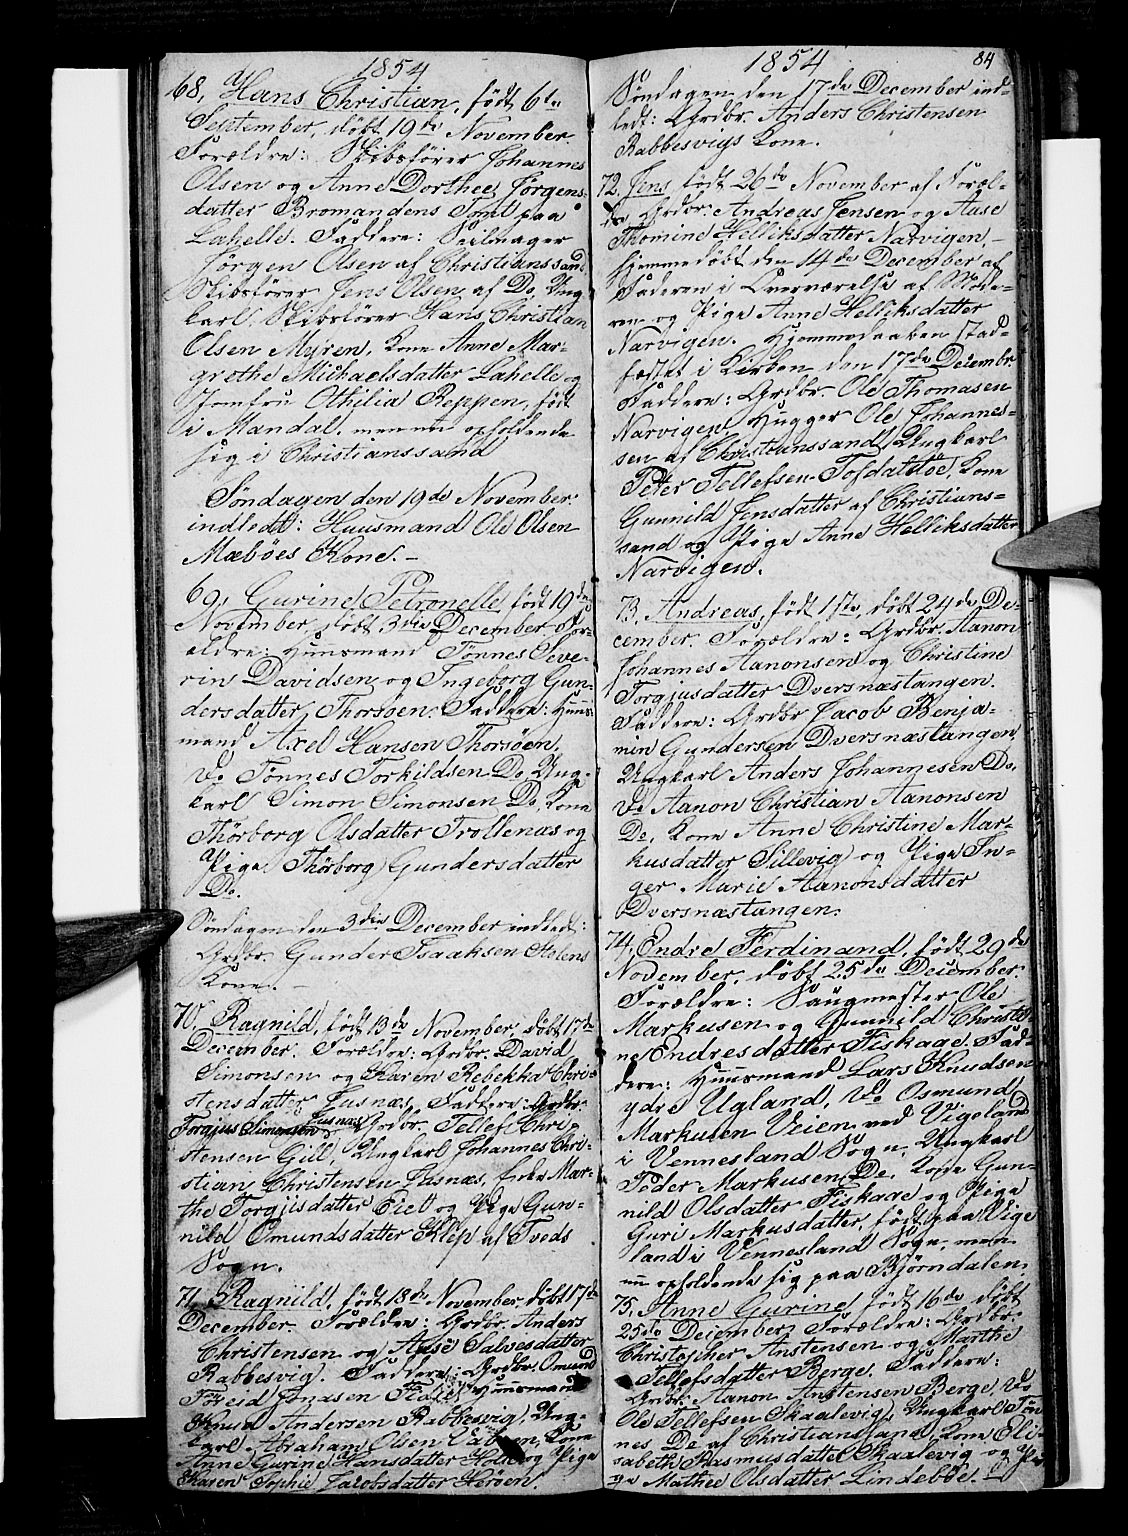 1854
68, Hans Christian, født 6te
September, døbt 19de November.
Forældre: Skibsfører Johannes
Olsen og Anne Dorthee Jørgens-
datter Bromandens Tomt paa
Lahelle. Faddere: Seilmager
Jørgen Olsen af Christianssand,
Skibsfører Jens Olsen af Do, Ung-
karl, Skibsfører Hans Christian
Olsen Myren, Kone Anne Mar-
grethe Michaelsdatter Lahelle og
Jomfru Othilia Reppen, født
i Mandal, men nu opholdende
sig i Christianssand
Søndagen den 19de November
indledt: Huusmand Ole Olsen
Mæbøes Kone.-
69, Gurine Petronelle, født 19de
November, døbt 3die December. For-
ældre: Huusmand Tønnes Seve-
rin Davidsen og Ingeborg Gun-
dersdatter Thorsøen. Faddere: Huus-
mand Axel Hansen Thorsøen,
Do Tønnes Torkildsen Do, Ung-
karl Simon Simonsen Do, Kone
Thørborg Olsdatter Trollenæs og
Pige Thørborg Gundersdatter
Do.
Søndagen den 3die December indledt:
Grdbr. Gunder Isaaksen Stelens
Kone. -
70, Ragnild, født 13de November, døbt 17de
December. Forældre: Grdbr. David
Simonsen og Karen Rebekka Chri-
stensdatter Fusnæs. Faddere: Grdbr.
Torgius Simonsen Fusnæs, Grdbr. Tellef Chri-
stensen Gill, Ungkarl Johannes Chri-
stian Christensen Fusnæs, Enke Mar-
the Torgjusdatter Eiet og Pige Gun-
nild Omundsdatter Klep af Tveds
Sogn.
71, Ragnild, født 18de November, døbt 17de
December. Forældre: Grdbr. Anders
Christensen og Aase Salvesdatter
Rabbesvig. Faddere: Grdbr. Omund
Jonasen Huusmand
Knud Andersen Rabbesvig, Ung-
karl Abraham Olsen Kone
Anne Gurine Hansdatter og Pige
Karen Sophie Jacobsdatter Herøen.
1854 84
Søndagen den 17de December ind-
ledt: Grdbr. Anders Christensen
Rabbesvigs Kone.
72, Jens, født 26de November af Foræl-
dre Grdbr: Andreas Jensen og Aase
Thomine Helliksdatter Narvigen,-
hjemmedøbt den 14de December af
Faderen i Overværelse af Mode-
ren og Pige Anne Helliksdatter
Narvigen. Hjemmedaaben stad-
fæstet i Kirken den 17de Decembr.
Faddere: Grdbr. Ole Thomasen
Narvigen, Hugger Ole Johannes-
sen af Christianssand, Ungkarl
Peter Tellefsen Tofdalsøe, Kone
Gunnild Jensdatter af Christians-
sand og Pige Anne Helliksdatter
Narvigen.
73, Andreas, født 1ste, døbt 24de De-
cember. Forældre: Grdbr. Aanon
Johannes Aanonsen og Christine
Torgjusdatter Dversnæstangen.
Faddere: Grdbr Jacob Benja-
min Gundersen Dversnæstangen,
Ungkarl Anders Johannesen Do,
Do Aanon Christian Aanonsen
Do, Kone Anne Christine Mar-
kusdatter Sillevig og Pige In-
ger Marie Aanonsdatter
Dversnæstangen.
74, Endre Ferdinand, født 29de
November, døbt 25de December.
Forældre: Saugmester Ole
Markusen og Gunnild Christi-
ne Endresdatter Fiskaae. Fad-
dere: Huusmand Lars Knudsen
ydre Ugland, Do Osmund
Markusen Veien ved Vigeland
i Vennesland Sogn, Ungkarl
Peder Markusen Do, Kone Gun-
nild Olsdatter Fiskaae og Pige
Guri Markusdatter, født paa Vige
land i Vennesland Sogn, men
nu opholdende sig paa Bjørndalen.
75, Anne Gurine, født 16de døbt
25de December. Forældre: Grdbr.
Christopher Anstensen og Marthe
Tellefsdatter Berge. Faddere:
Grdbr. Aanon Anstensen Berge, Do
Ole Tellefsen Skaalevig, Ungkarl Tøn-
nes Do af Christianssand, Kone Eli-
sabeth Rasmusdatter Skaalevig og Pi-
ge Mathee Olsdatter Lindebøe.